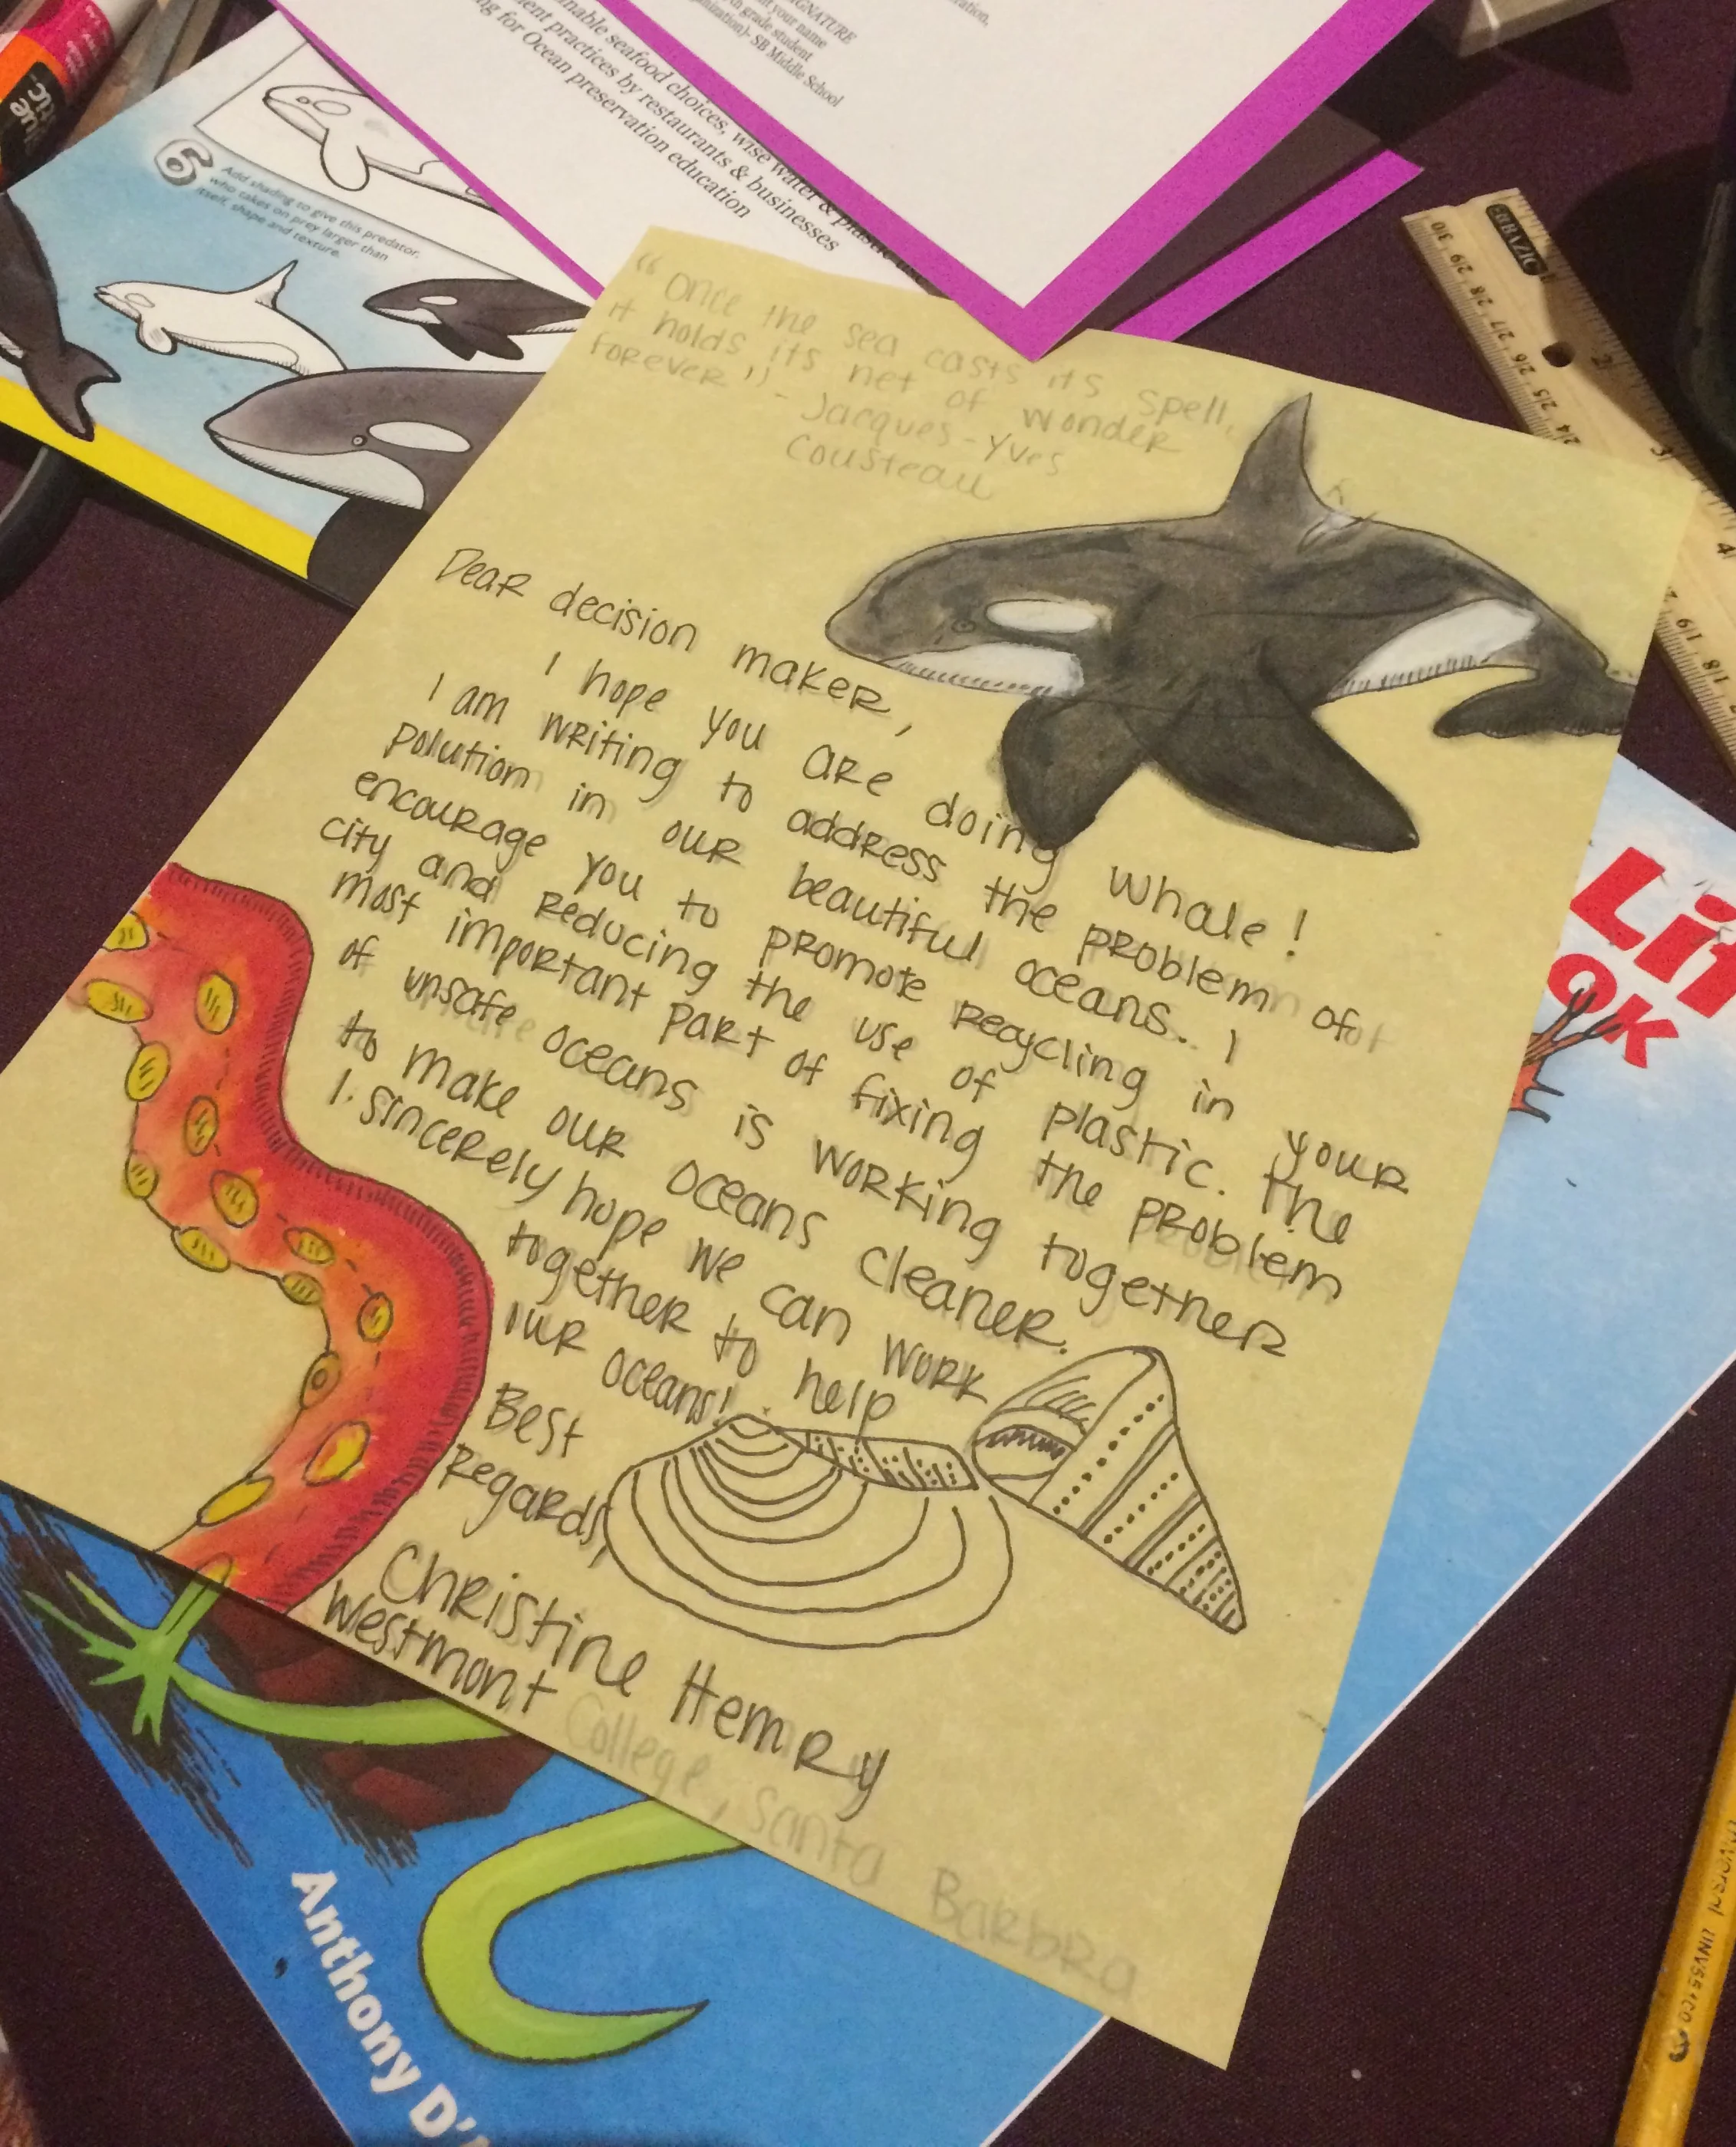 GNATURE
it your name
th grade student
nization)- SB Middle School
ration,
nable seafood choices, wise water & plastic use
ent practices by restaurants & businesses
ng for Ocean preservation education
6
Add shading to give this predator,
who takes on prey larger than
itself, shape and texture.
EBAZIC
30 29 28 27 26 25 24
19 18
"Once the sea casts its spell,
it holds its net of wonder
forever" - Jacques-Yves
Cousteau
Dear decision maker,
I hope you are doing whale!
I am writing to address the problem of
polution in our beautiful oceans. I
encourage you to promote recycling in your
city and reducing the use of plastic. The
most important part of fixing the problem
of unsafe oceans is working together
to make our oceans cleaner.
I sincerely hope we can work
together to help
our oceans!
Best
Regards,
Christine Hemry
Westmont College, Santa Barbra
Lit
OK
Anthony D'